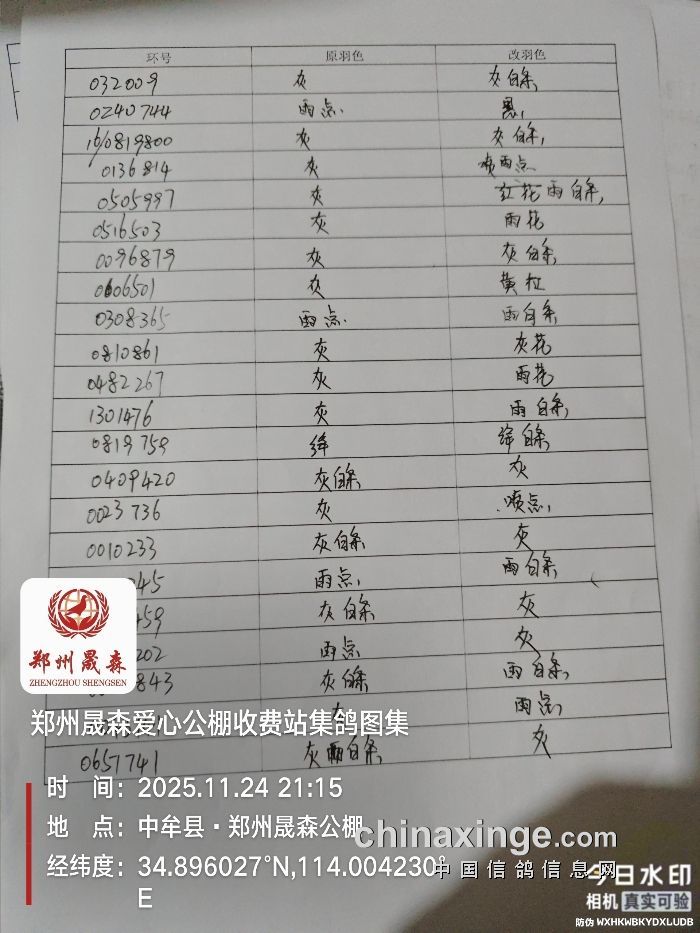 环号 原羽色 改羽色
032009 灰 灰白条,
0240744 雨点. 黑,
16/0819800 灰 灰白条,
0136814 灰 喷雨点
0505997 灰 红花雨白条,
0516503 灰 雨花
0096879 灰 灰白条,
0606501 灰 黄拉
0308365 雨点. 雨白条,
0810861 灰 灰花
0482267 灰 雨花
1301476 灰 雨白条,
0819759 绛 绛白条,
0409420 灰白条, 灰
0023736 灰 .喷点,
0010233 灰白条, 灰
45 雨点, 雨白条,
459 灰白条, 灰
202 雨点 灰
843 灰白条, 雨白条,
灰 雨点,
0651741 灰雨白条, 灰
郑州晟森
ZHENGZHOU SHENGSEN
郑州晟森爱心公棚收费站集鸽图集
时 间：2025.11.24 21:15
地 点：中牟县·郑州晟森公棚
经纬度：34.896027°N,114.004230°E
chinaxinge.com
中国信鸽信息网
今日水印
相机 真实可验
防伪 WXHKWBKYDXLUDB